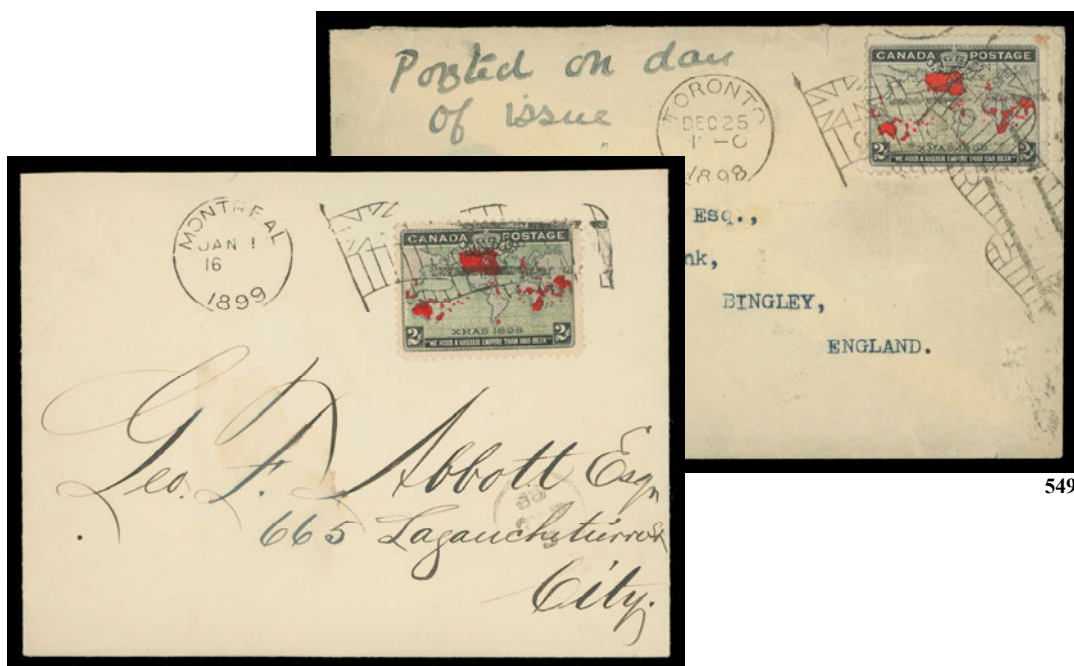 Posted on day
of issue
TORONTO
DEC 25
1898
CANADA POSTAGE
2
XMAS 1898
2
"WE HOLD A VASTER EMPIRE THAN HAS BEEN"
Esq.,
nk,
BINGLEY,
ENGLAND.
549
MONTREAL
JAN 1
16
1899
CANADA POSTAGE
2
XMAS 1898
2
"WE HOLD A VASTER EMPIRE THAN HAS BEEN"
Geo. F. D Abbott Esq
665
City.